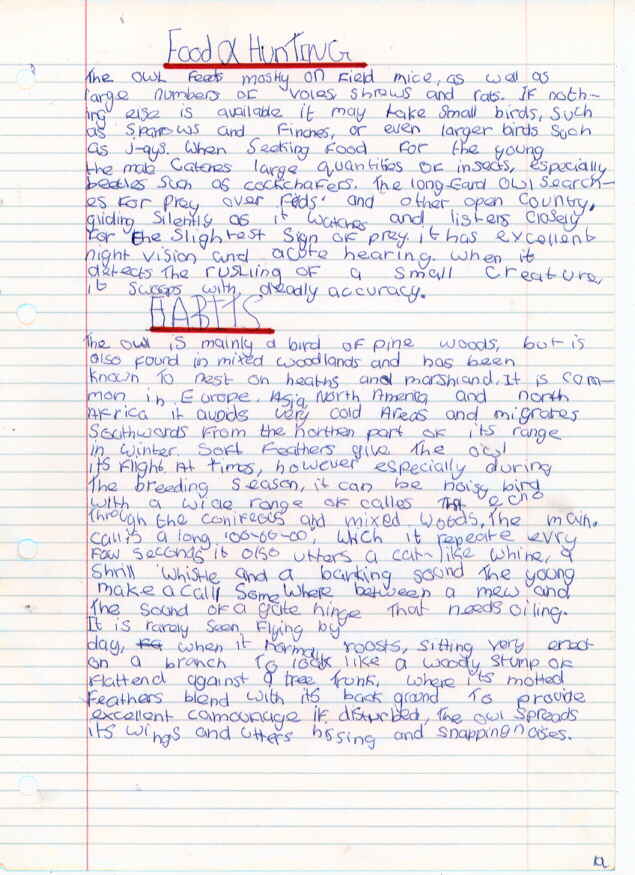 Food & HUNTING
The OWL Feeds mostly on Field mice, as well as
large numbers of voles, shrews and rats. If noth-
ing else is available it may take small birds, such
as sparrows and Finches, or even larger birds such
as jays. When seeking Food For the young
the male catches large quantities of insects, especially
beetles such as cockchafers. The long-Eard Owl search-
es For prey over and other open country,
gliding silently as it watches and listens closely
For the slightest sign of prey. it has excellent
night vision and acute hearing. when it
detects The rusling of a small creature,
it swoops with deadly accuracy.
HABITS
The owl is mainly a bird of pine woods, but is
also found in mixed woodlands and has been
known To nest on heaths and marshland. It is com-
mon in Europe. Asia, North America and north
Africa it avoids very cold Areas and migrates
Southwords From the northen part of its range
in winter. Soft Feathers give The owl
its Flight. At times, however especially during
The breeding season, it can be noisy bird
with a wide range of calles That echo
Through the and mixed woods, The main.
call is a long 'oo-oo-oo', which it repeate evry
Few seconds it also utters a cat-like whine, a
Shrill whistle and a barking sound The young
make a call somewhere between a mew and
The sound of a gate hinge That needs oiling.
It is rarely seen Flying by
day, when it normaly roosts, sitting very erect
on a branch To look like a woody stump or
Flattend against a tree Trunk, where its motled
Feathers blend with its back ground To provide
excellent if disturbed, The owl spreads
its wings and utters hissing and snapping noises.